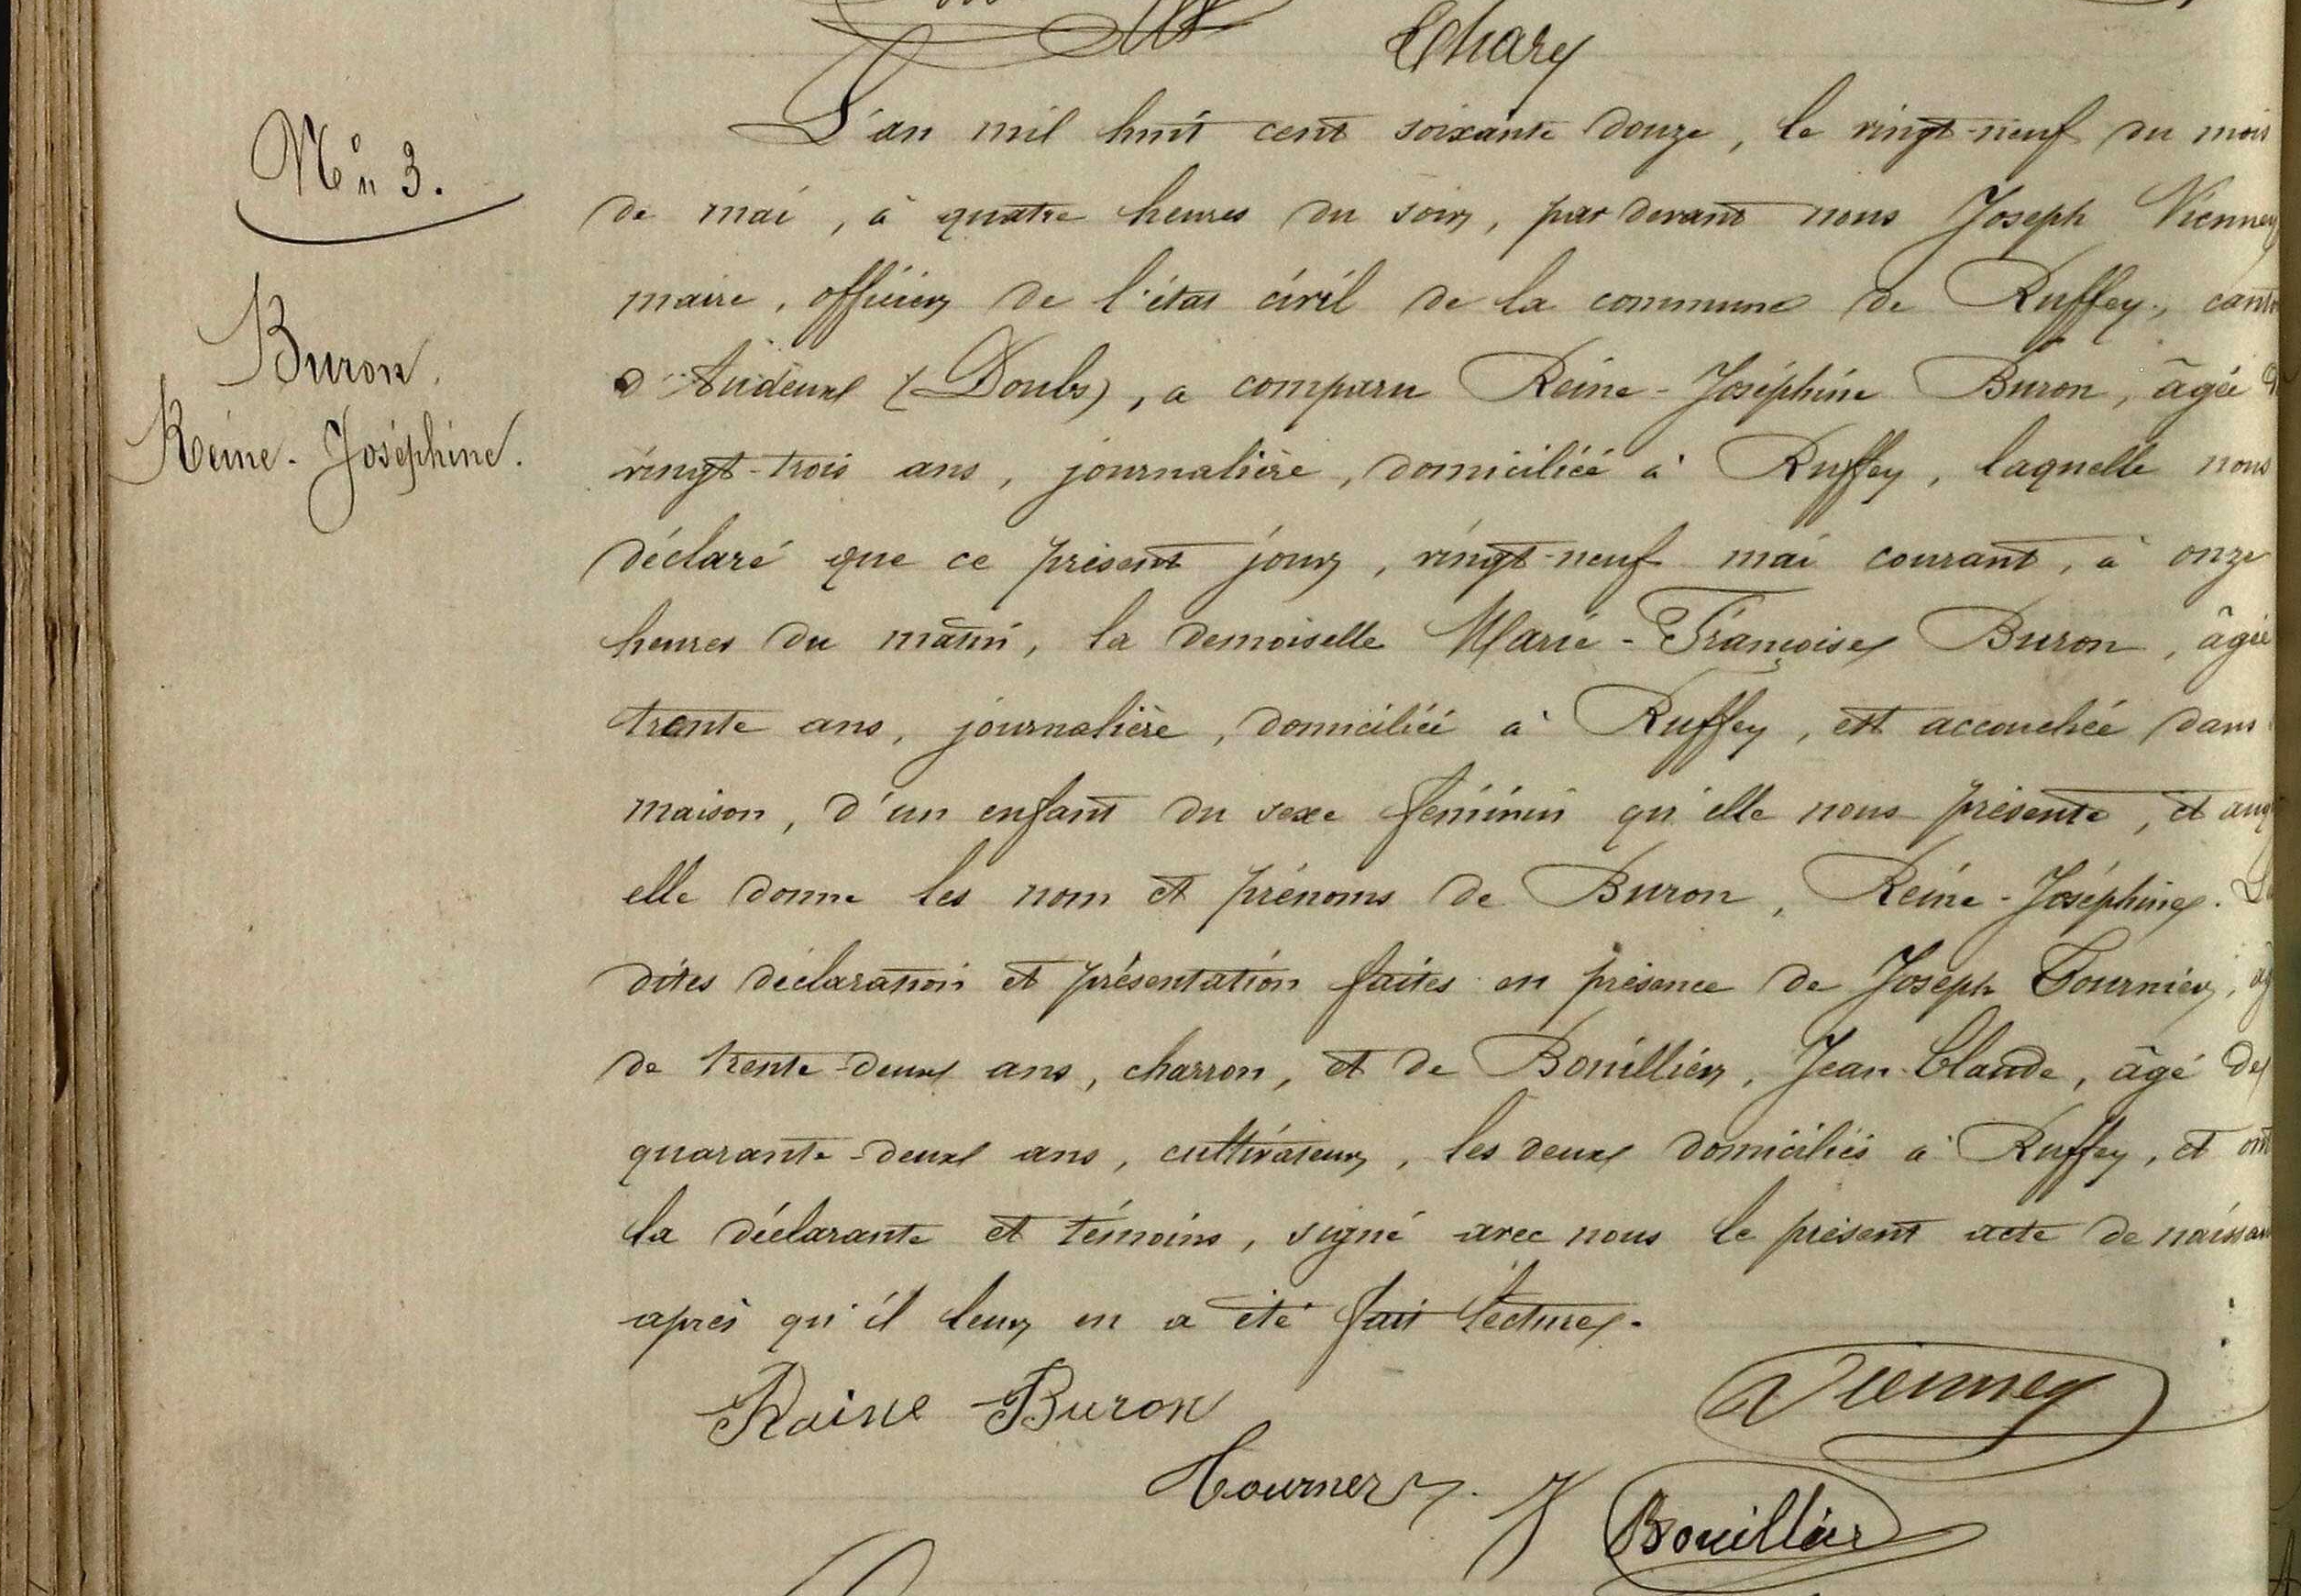 Chary
N° 3.
Buron
Reine-Joséphine.
L'an mil huit cent soixante douze, le vingt-neuf du mois
de mai, à quatre heures du soir, par devant nous Joseph Vienney
maire, officier de l'état civil de la commune de Ruffey, canton
d'Audeux (Doubs), a comparu Reine-Joséphine Buron, âgée de
vingt-trois ans, journalière, domiciliée à Ruffey, laquelle nous
déclaré que ce présent jour, vingt-neuf mai courant, à onze
heures du matin, la demoiselle Marie-Françoise Buron, âgée
trente ans, journalière, domiciliée à Ruffey, est accouchée dans
maison, d'un enfant du sexe féminin qu'elle nous présente, et auq
elle donne les nom et prénoms de Buron, Reine-Joséphine.
dites déclaration et présentation faites en présence de Joseph Tournier, ag
de trente-deux ans, charron, et de Bouillier, Jean-Claude, âgé de
quarante-deux ans, cultivateur, les deux domiciliés à Ruffey, et ont
la déclarante et témoins, signé avec nous le présent acte de naissan
après qu'il leur en a été fait lecture.
Raine Buron
Vienney
Tournier
J Bouillier